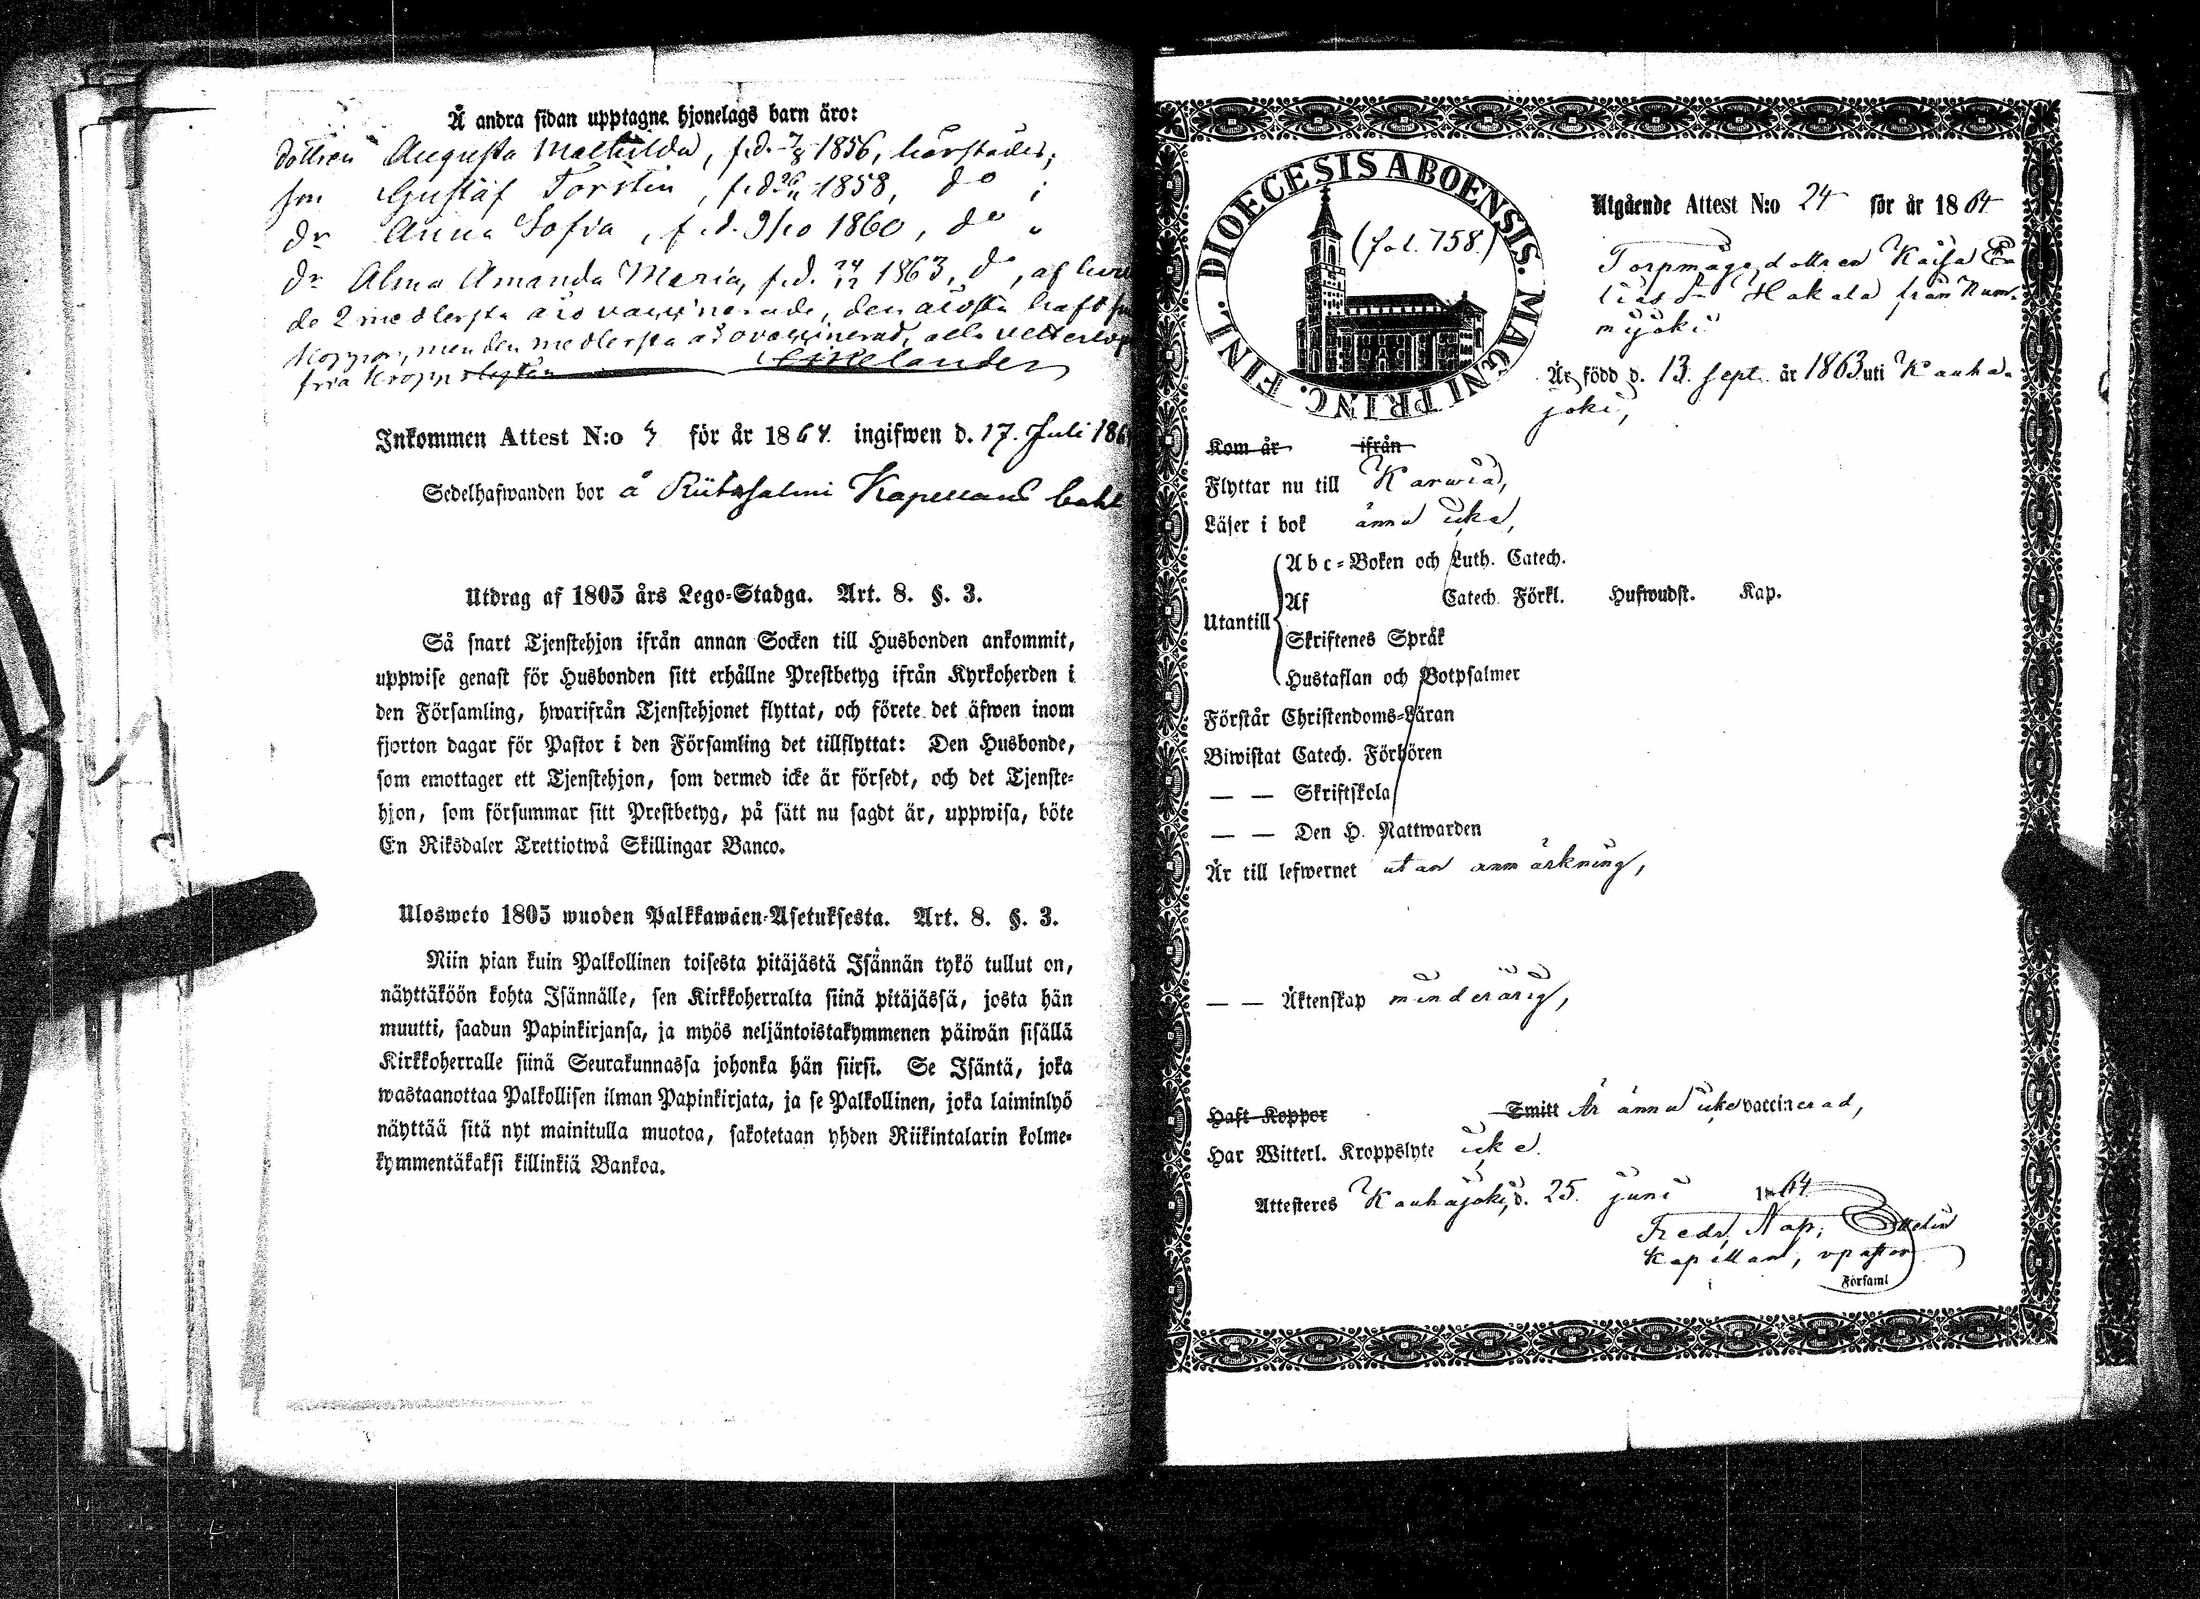 Å andra sidan upptagne hjonelags barn äro:
dottren Augusta Mathilda, f.d. 7/8 1856, härstädes;
son Gustaf Torsten, f.d. 26/11 1858, do ;
dr Anna Sofia, f.d. 9/10 1860, do "
dr Alma Amanda Maria, f.d. 24/12 1863, do, af hvil
de 2 medlersta äro vaccinerade, den äldsta haft
koppor, men den medlersta ovaccinerad, alla vetterl
fria kroppslyten
Inkommen Attest N:o 4 för år 1864. ingifwen d. 17. Juli 186
Sedelhafwanden bor å Kapellans
Utdrag af 1805 års Lego-Stadga. Art. 8. §. 3.
Så snart Tjenstehjon ifrån annan Socken till Husbonden ankommit,
uppwise genast för Husbonden sitt erhållne Prestbetyg ifrån Kyrkoherden i
den Församling, hwarifrån Tjenstehjonet flyttat, och förete det äfwen inom
fjorton dagar för Pastor i den Församling det tillflyttat: Den Husbonde,
som emottager ett Tjenstehjon, som dermed icke är försedt, och det Tjenste-
hjon, som försummar sitt Prestbetyg, på sätt nu sagdt är, uppwisa, böte
En Riksdaler Trettiotwå Skillingar Banco.
Ulosweto 1805 wuoden Palkkawäen-Asetuksesta. Art. 8. §. 3.
Niin pian kuin Palkollinen toisesta pitäjästä Isännän tykö tullut on,
näyttäköön kohta Isännälle, sen Kirkkoherralta siinä pitäjässä, josta hän
muutti, saadun Papinkirjansa, ja myös neljäntoistakymmenen päiwän sisällä
Kirkkoherralle siinä Seurakunnassa johonka hän siirsi. Se Isäntä, joka
wastaanottaa Palkollisen ilman Papinkirjata, ja se Palkollinen, joka laiminlyö
näyttää sitä nyt mainitulla muotoa, sakotetaan yhden Riikintalarin kolme-
kymmentäkaksi killinkiä Bankoa.
FINL. DIOECESIS ABOENSIS. MAGNI PRINC.
(fol. 758.)
Utgående Attest N:o 24 för år 1864
Torpmågs dottren Kaisa
Hakala från Kum-
mijoki
Är född d. 13. sept. år 1863 uti Kauha-
joki,
Kom år ifrån
Flyttar nu till Karwia,
Läser i bok ännu icke,
Utantill
Abc-Boken och Luth. Catech.
Af Catech. Förkl. Hufwudst. Kap.
Skriftenes Språk
Hustaflan och Botpsalmer
Förstår Christendoms-Läran
Biwistat Catech. Förhören
— — Skriftskola
— — Den H. Nattwarden
Är till lefwernet utan anmärkning,
— — Äktenskap minderårig,
Haft Koppor Smitt Är ännu icke vaccinerad,
Har Witterl. Kroppslyte icke.
Attesteres Kauhajoki, d. 25. juni 1864
Fredr. Nap.
Kapellan, v pastor
i Församl